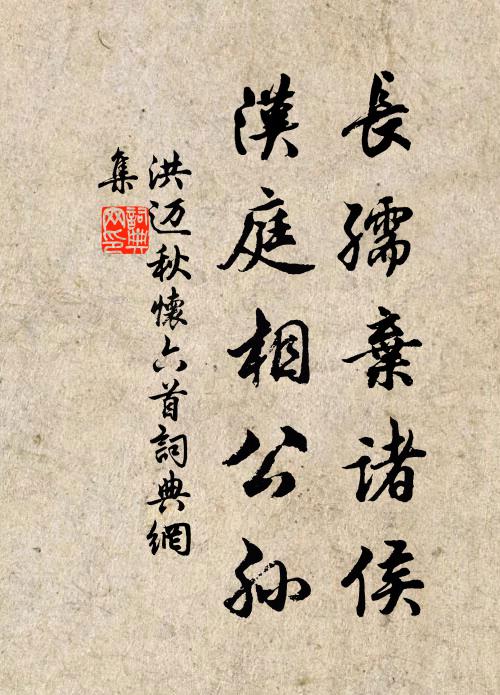 長孺棄诸侯
漢庭相公孙
洪迈秋懷六首詞典網
集
詞典
网印